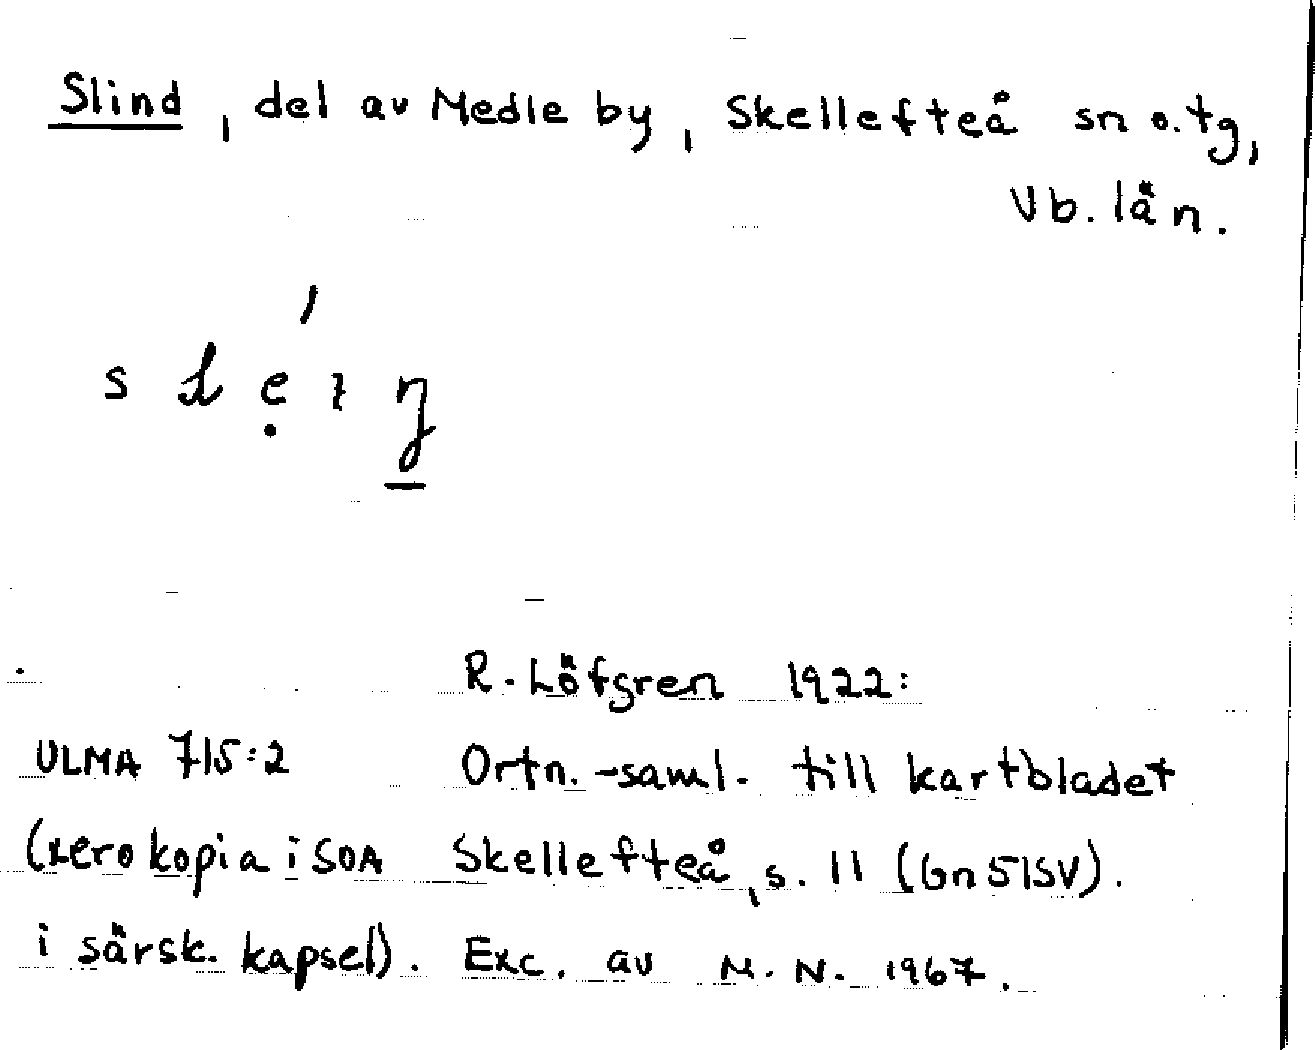 Slind, del av Medle by, Skellefteå sn o. tg,
Vb. län.
R. Löfgren 1922:
ULMA 715:2 Ortn.-saml. till kartbladet
(xerokopia i SOA Skellefteå, s. 11 (Gn 51SV).
i särsk. kapsel). Exc. av M. N. 1967.